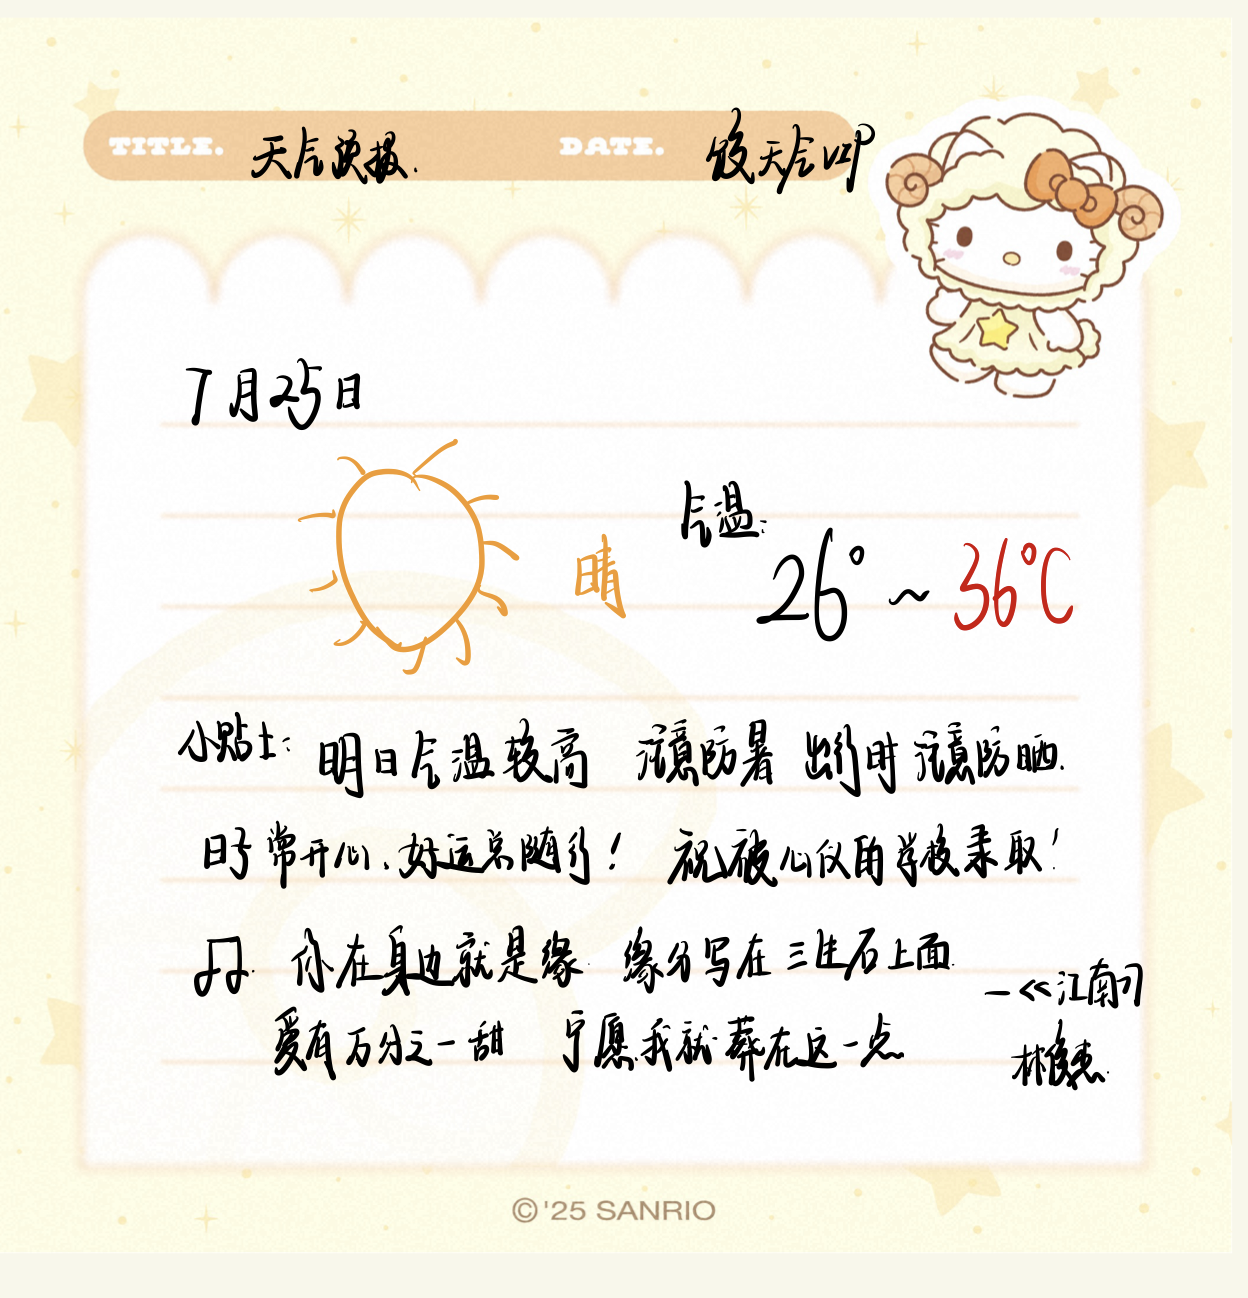 TITLE. 天气预报. DATE. 饺天气VIP
7月25日
气温:
晴 26°~36°C
小贴士: 明日气温较高 注意防暑 出行时注意防晒.
日子常开心、好运总随行! 祝被心仪的学校录取!
♫. 你在身边就是缘 缘分写在三生石上面 —《江南》
爱有万分之一甜 宁愿我就葬在这一点 林俊杰.
©'25 SANRIO